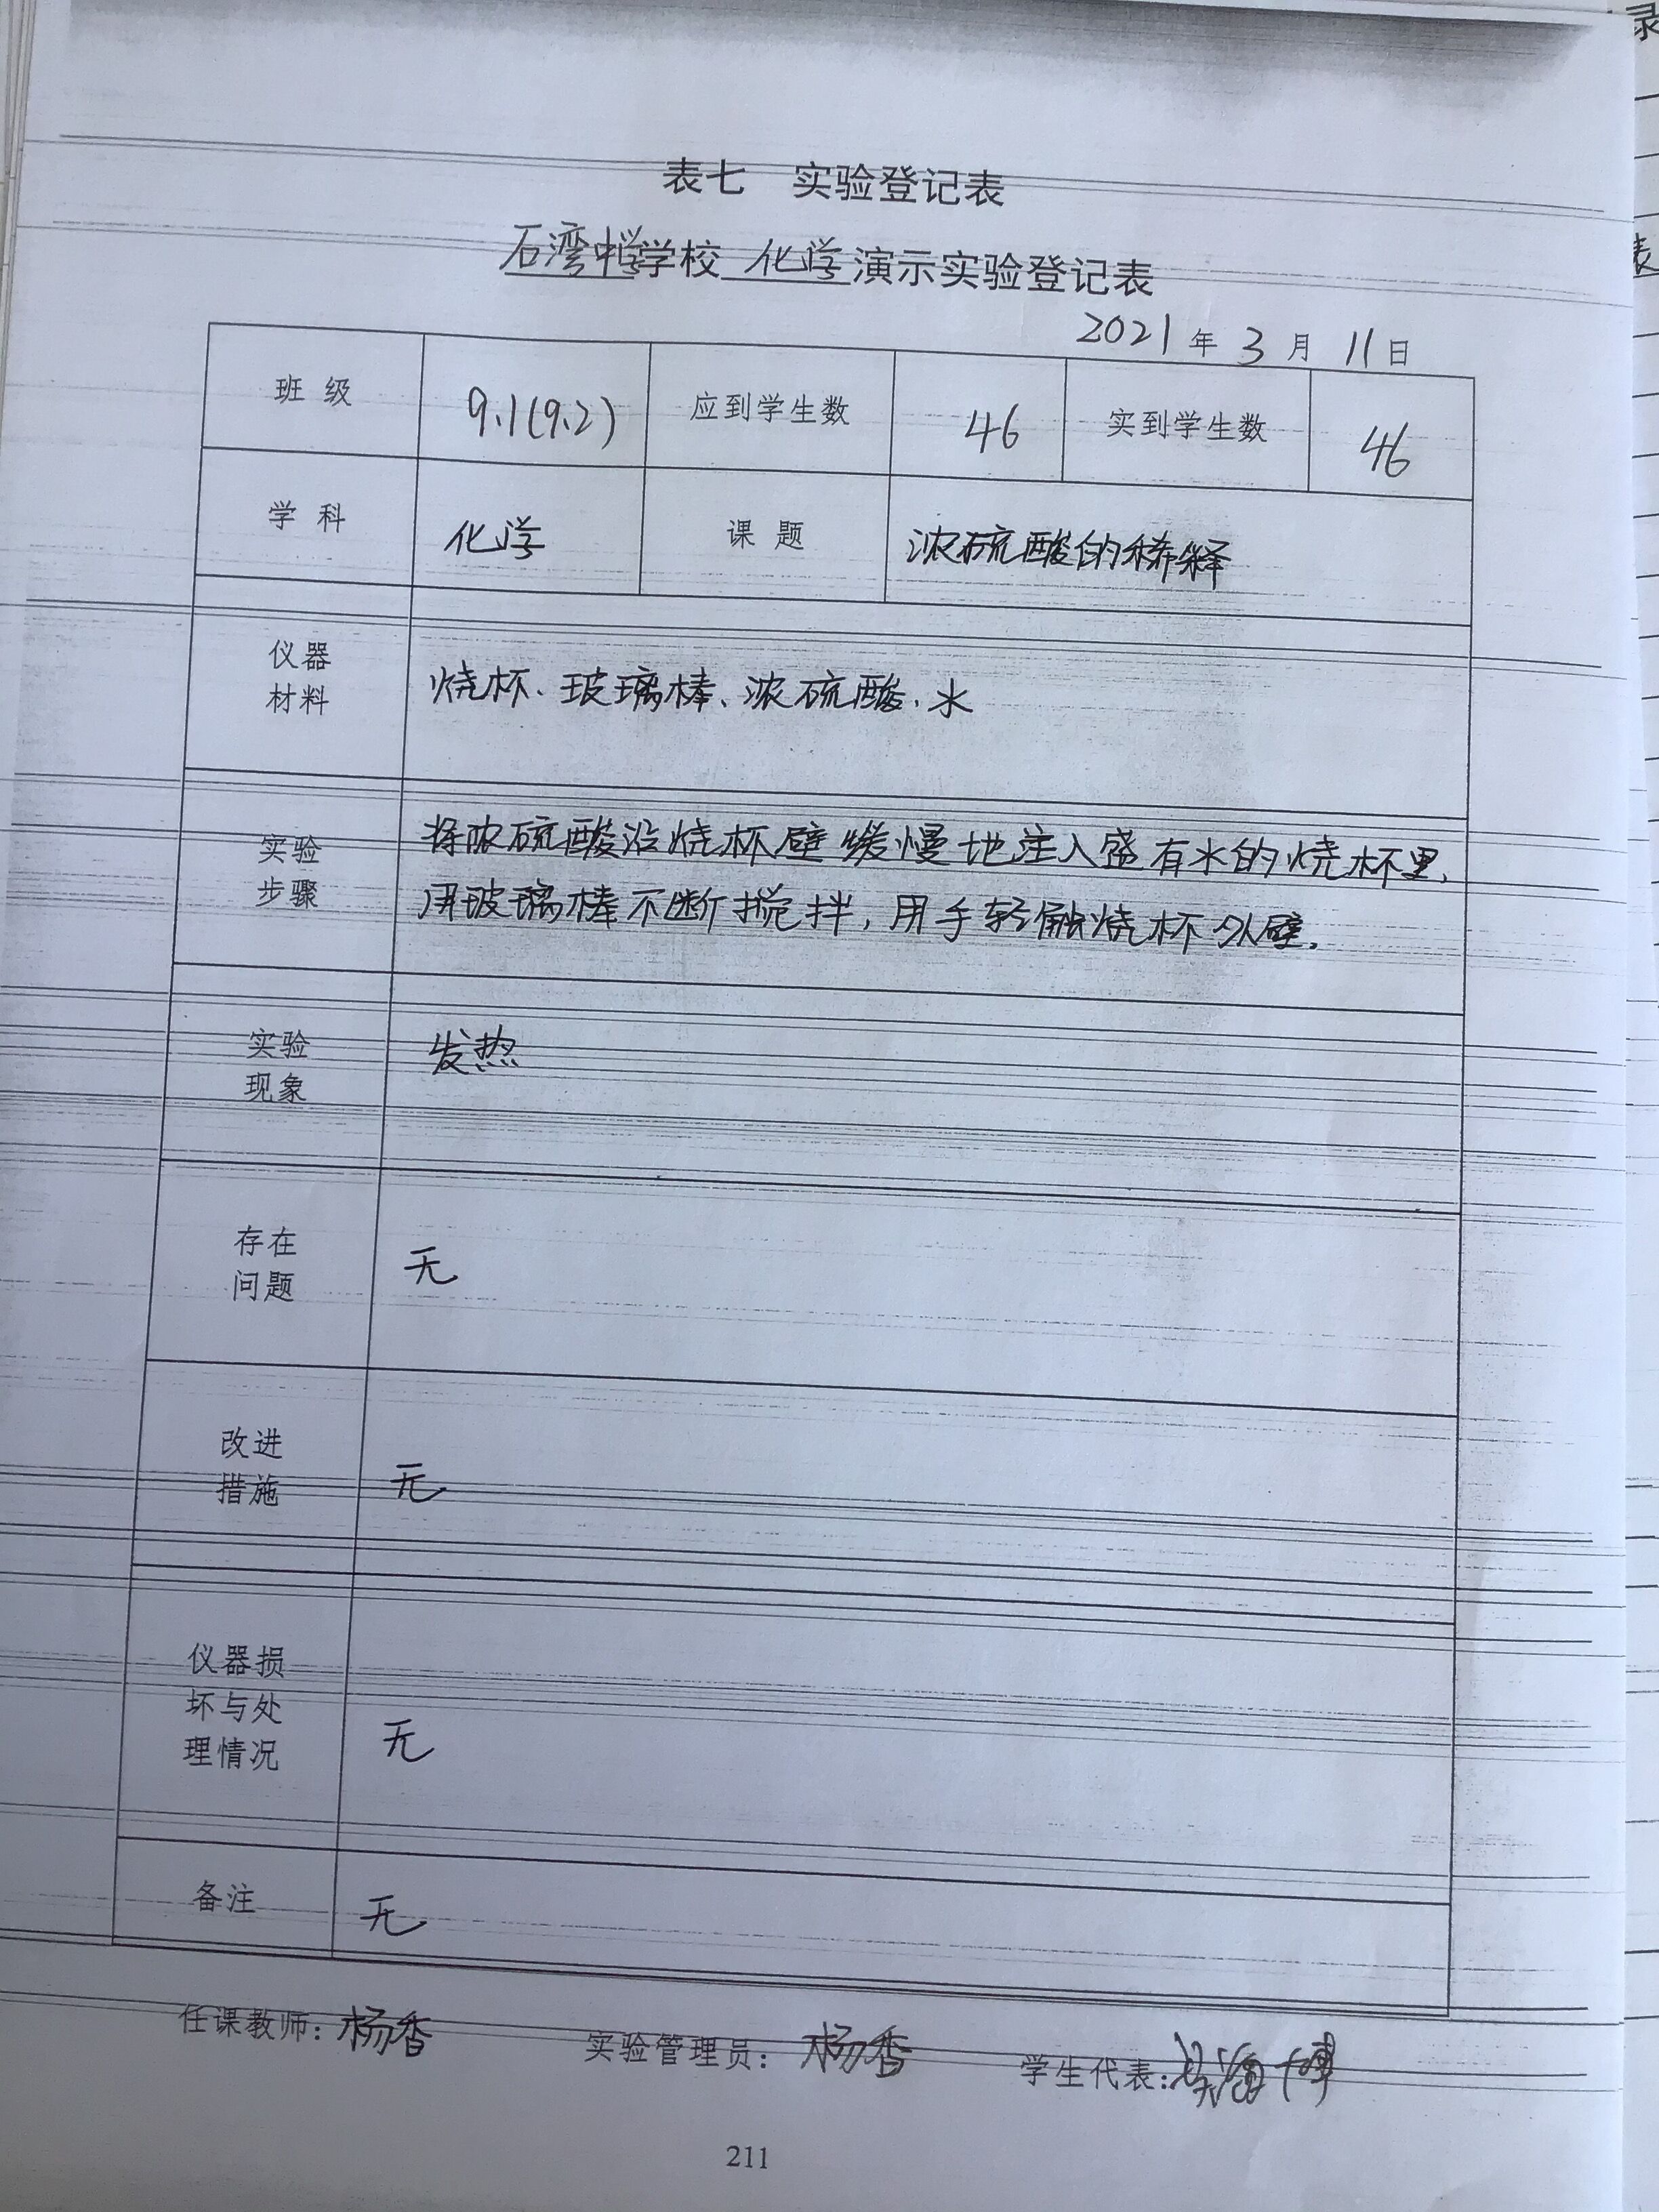 表七 实验登记表
石湾中学学校 化学 演示实验登记表
2021 年 3 月 11 日
班 级 9.1(9.2) 应到学生数 46 实到学生数 46
学 科 化学 课 题 浓硫酸的稀释
仪器
材料
烧杯、玻璃棒、浓硫酸、水
实验
步骤
将浓硫酸沿烧杯壁缓慢地注入盛有水的烧杯里,
用玻璃棒不断搅拌,用手轻触烧杯外壁.
实验
现象
发热
存在
问题
无
改进
措施
无
仪器损
坏与处
理情况
无
备注 无
任课教师: 杨香 实验管理员: 杨香 学生代表:
211
录
表